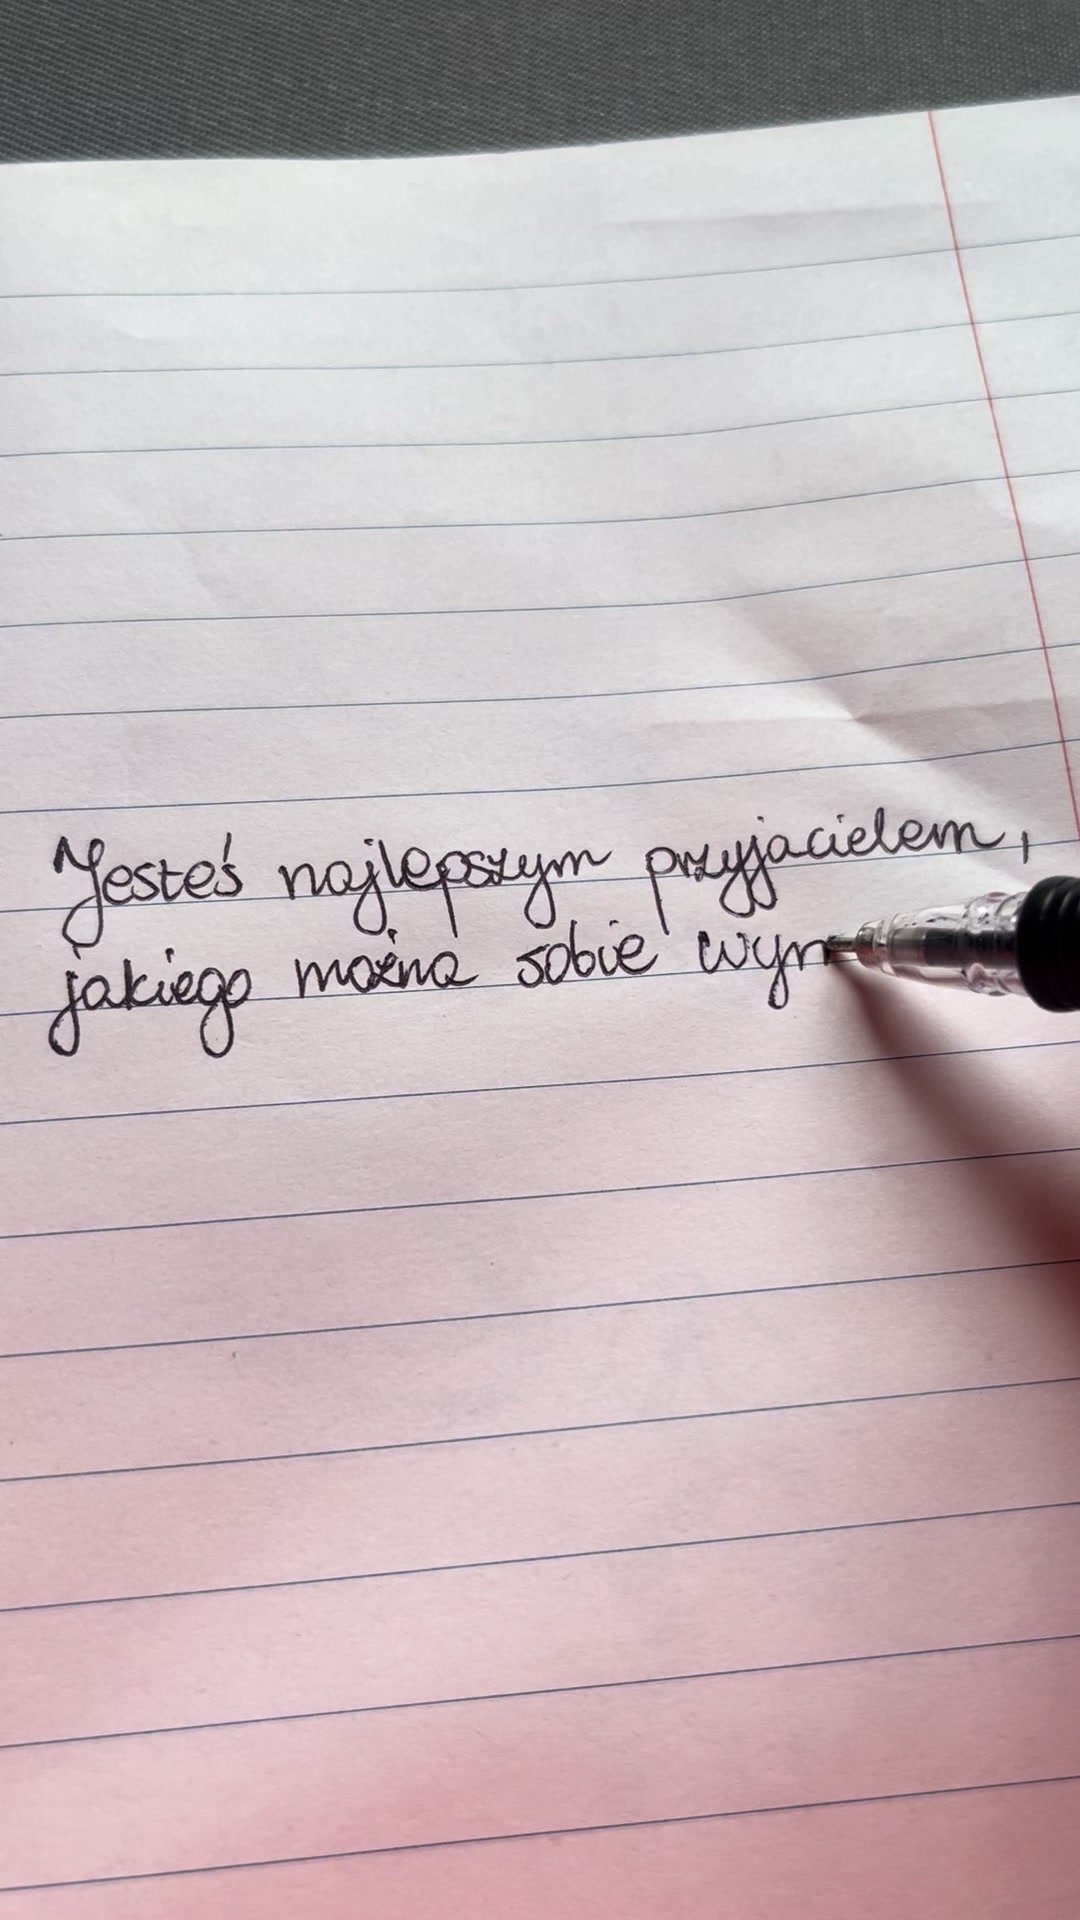 Jesteś najlepszym przyjacielem,
jakiego można sobie wym